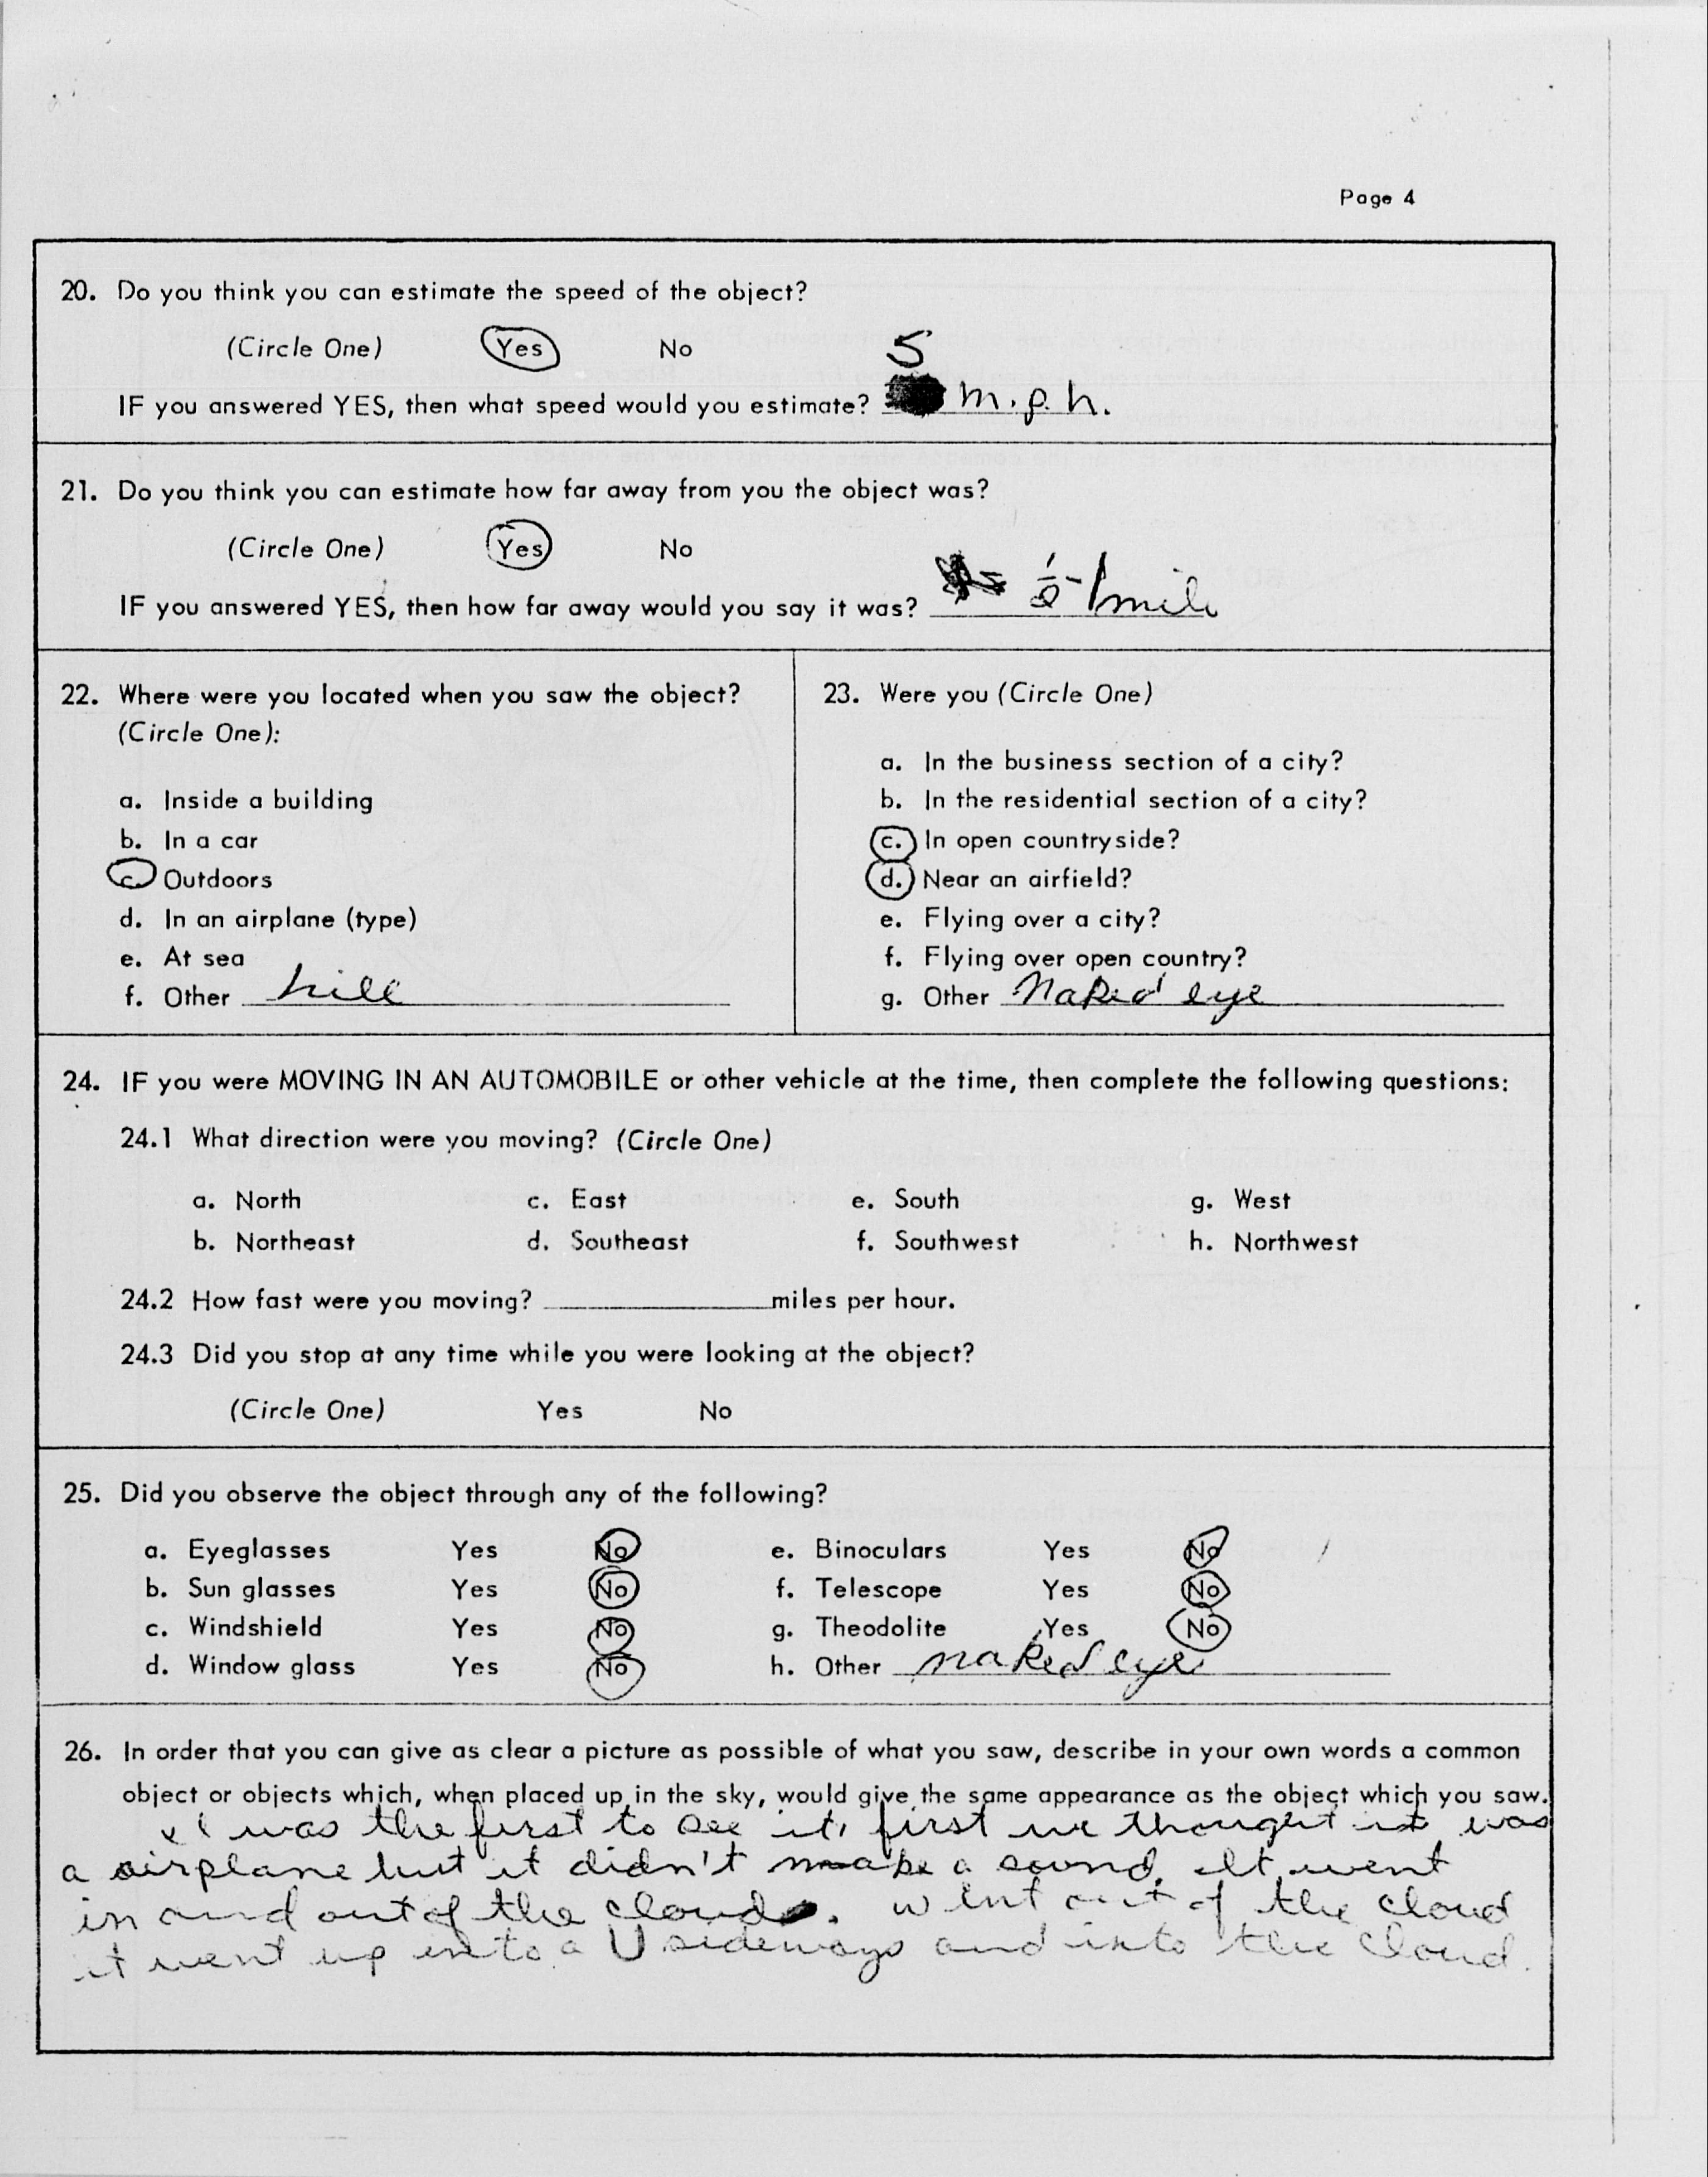 Page 4
20. Do you think you can estimate the speed of the object?
(Circle One) Yes No
5
IF you answered YES, then what speed would you estimate? m.p.h.
21. Do you think you can estimate how far away from you the object was?
(Circle One) Yes No
IF you answered YES, then how far away would you say it was? ½-1 mile
22. Where were you located when you saw the object?
(Circle One):
a. Inside a building
b. In a car
c. Outdoors
d. In an airplane (type)
e. At sea
f. Other hill
23. Were you (Circle One)
a. In the business section of a city?
b. In the residential section of a city?
c. In open countryside?
d. Near an airfield?
e. Flying over a city?
f. Flying over open country?
g. Other Naked eye
24. IF you were MOVING IN AN AUTOMOBILE or other vehicle at the time, then complete the following questions:
24.1 What direction were you moving? (Circle One)
a. North c. East e. South g. West
b. Northeast d. Southeast f. Southwest h. Northwest
24.2 How fast were you moving? miles per hour.
24.3 Did you stop at any time while you were looking at the object?
(Circle One) Yes No
25. Did you observe the object through any of the following?
a. Eyeglasses Yes No e. Binoculars Yes No
b. Sun glasses Yes No f. Telescope Yes No
c. Windshield Yes No g. Theodolite Yes No
d. Window glass Yes No h. Other naked eye
26. In order that you can give as clear a picture as possible of what you saw, describe in your own words a common
object or objects which, when placed up in the sky, would give the same appearance as the object which you saw.
I was the first to see it, first we thought it was
a airplane but it didn't make a sound. It went
in and out of the cloud. went out of the cloud
it went up into a U sideways and into the cloud.